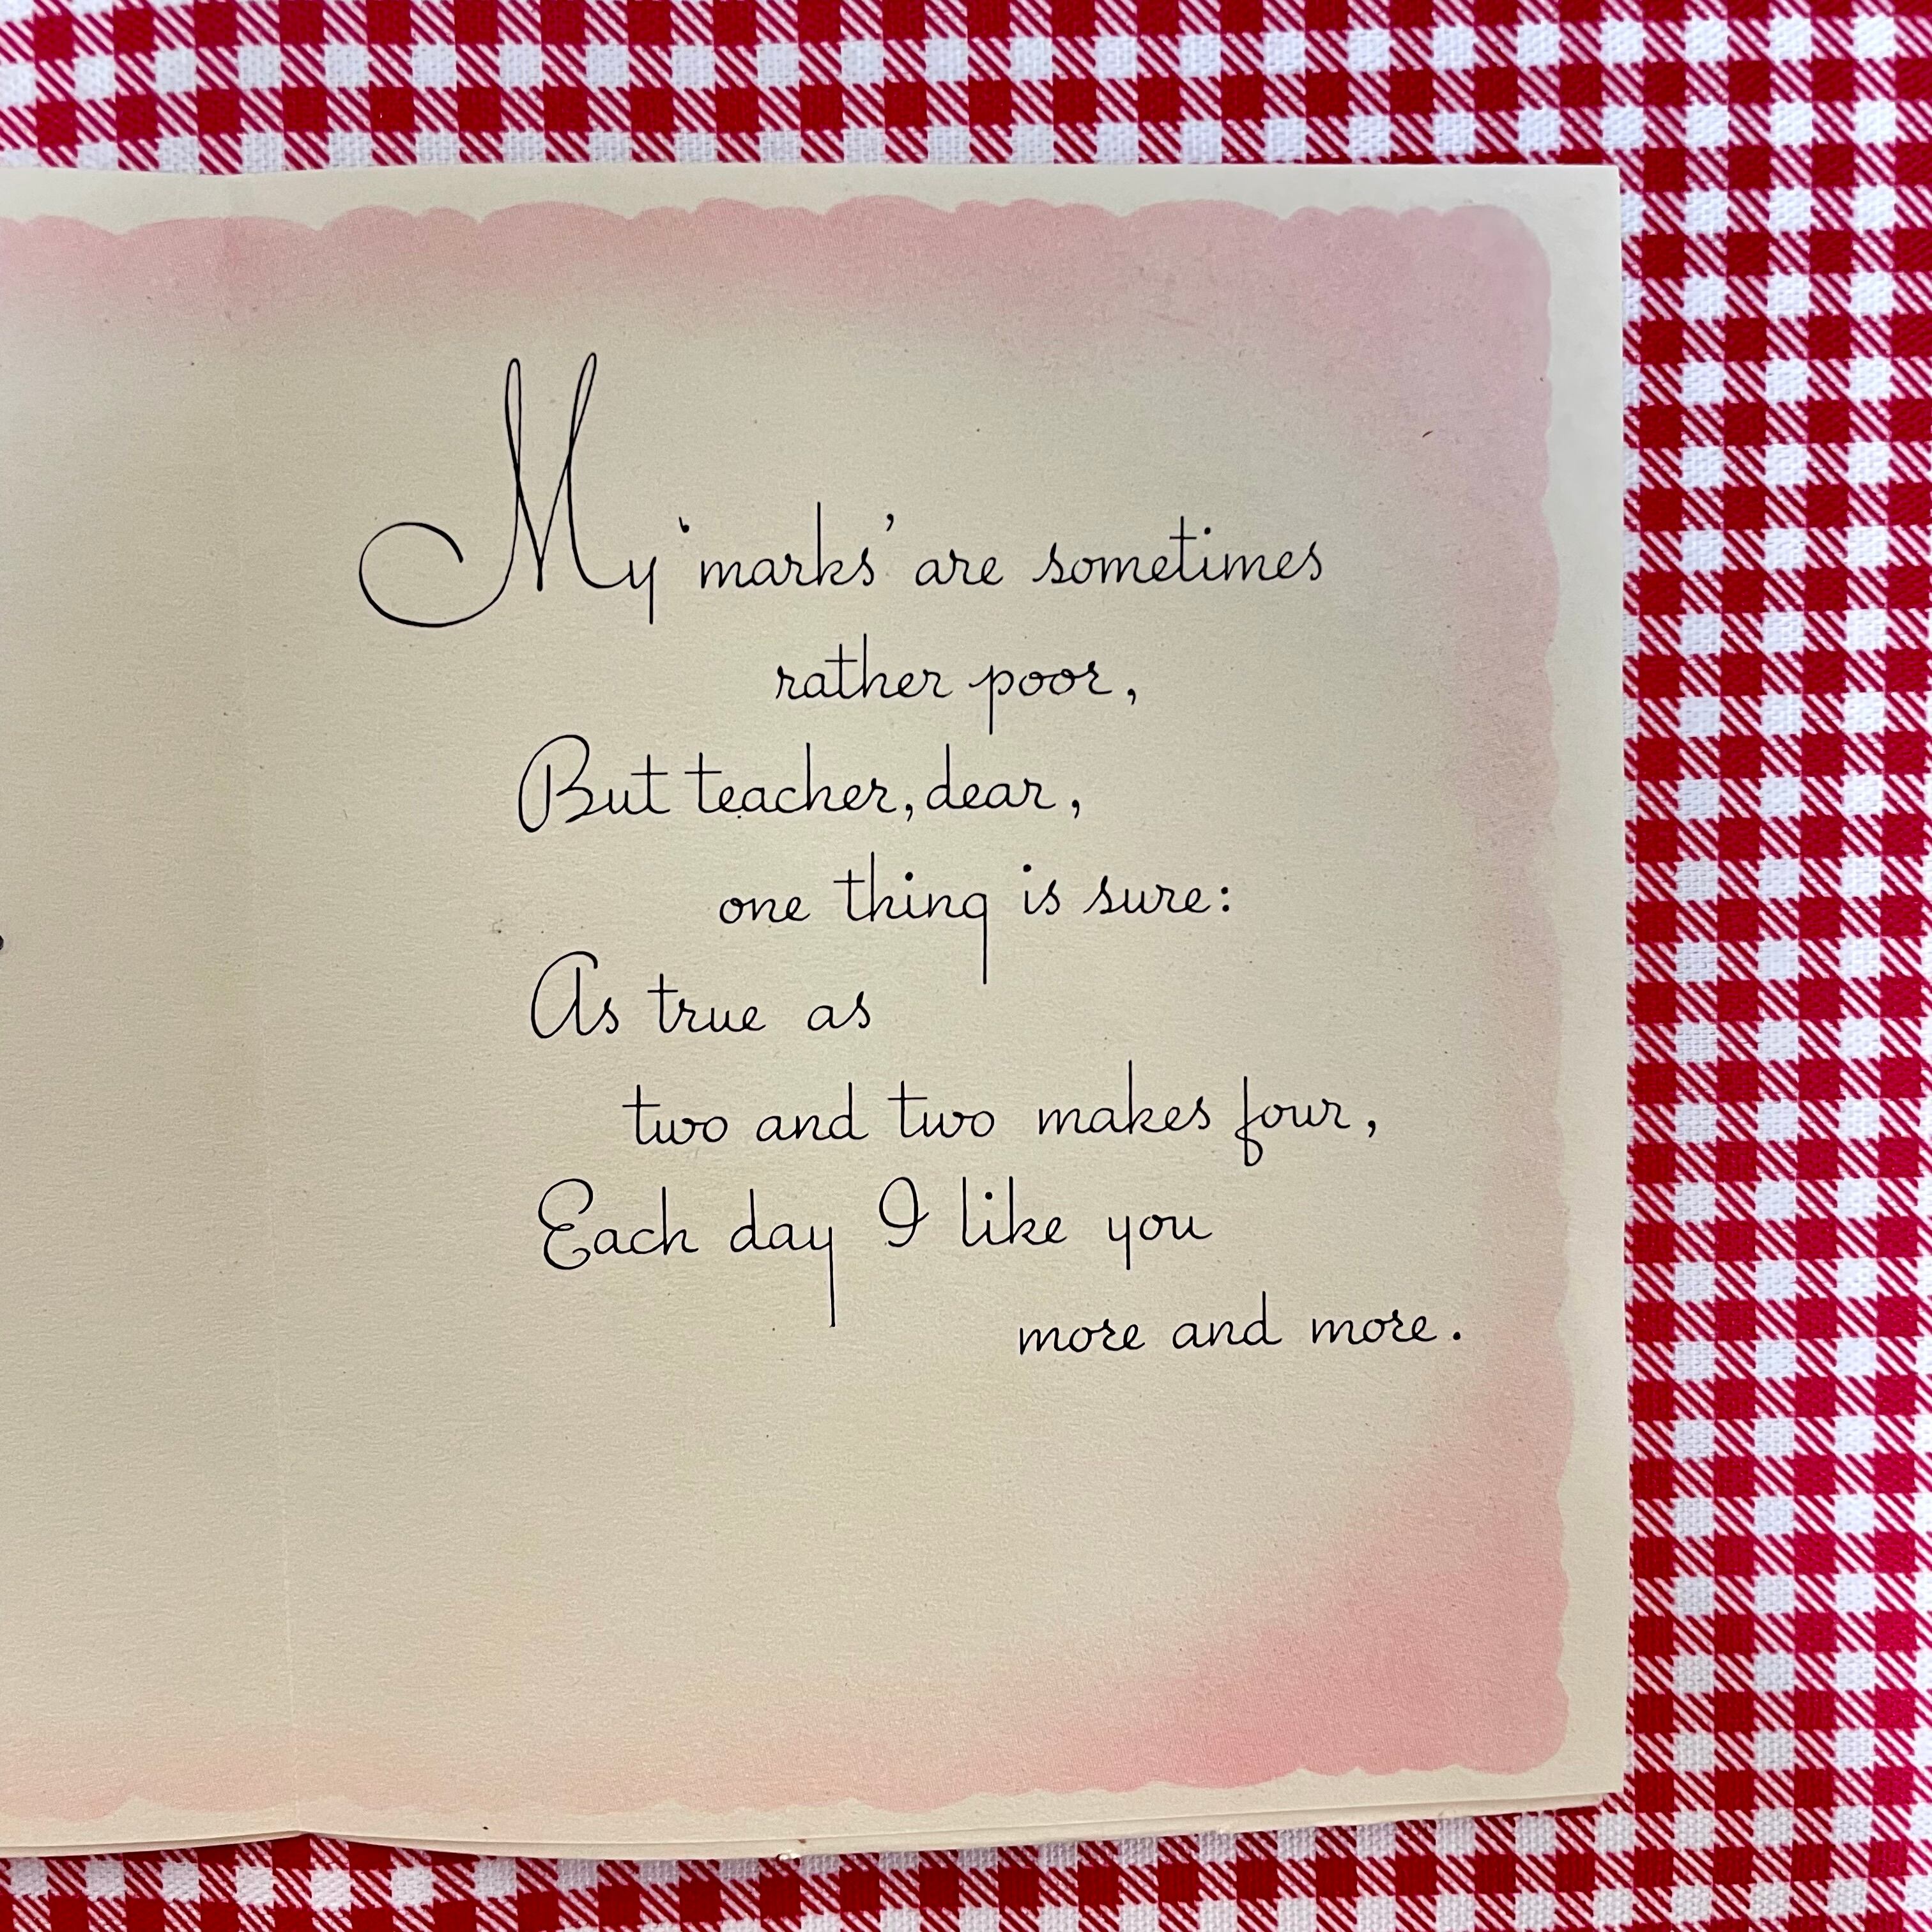 My 'marks' are sometimes
rather poor,
But teacher, dear,
one thing is sure:
As true as
two and two makes four,
Each day I like you
more and more.